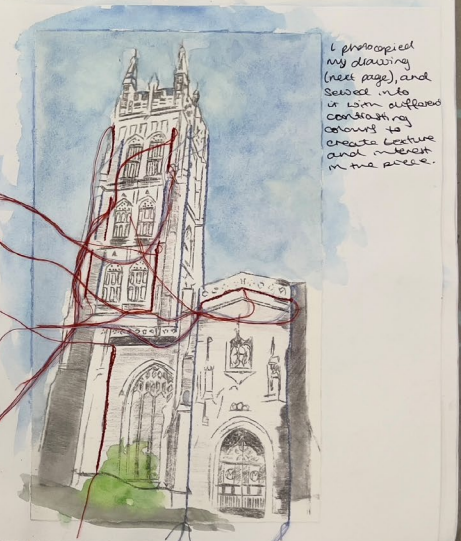 I photocopied
my drawing
(next page), and
sewed into
it with different
contrasting
colours to
create texture
and interest
in the piece.